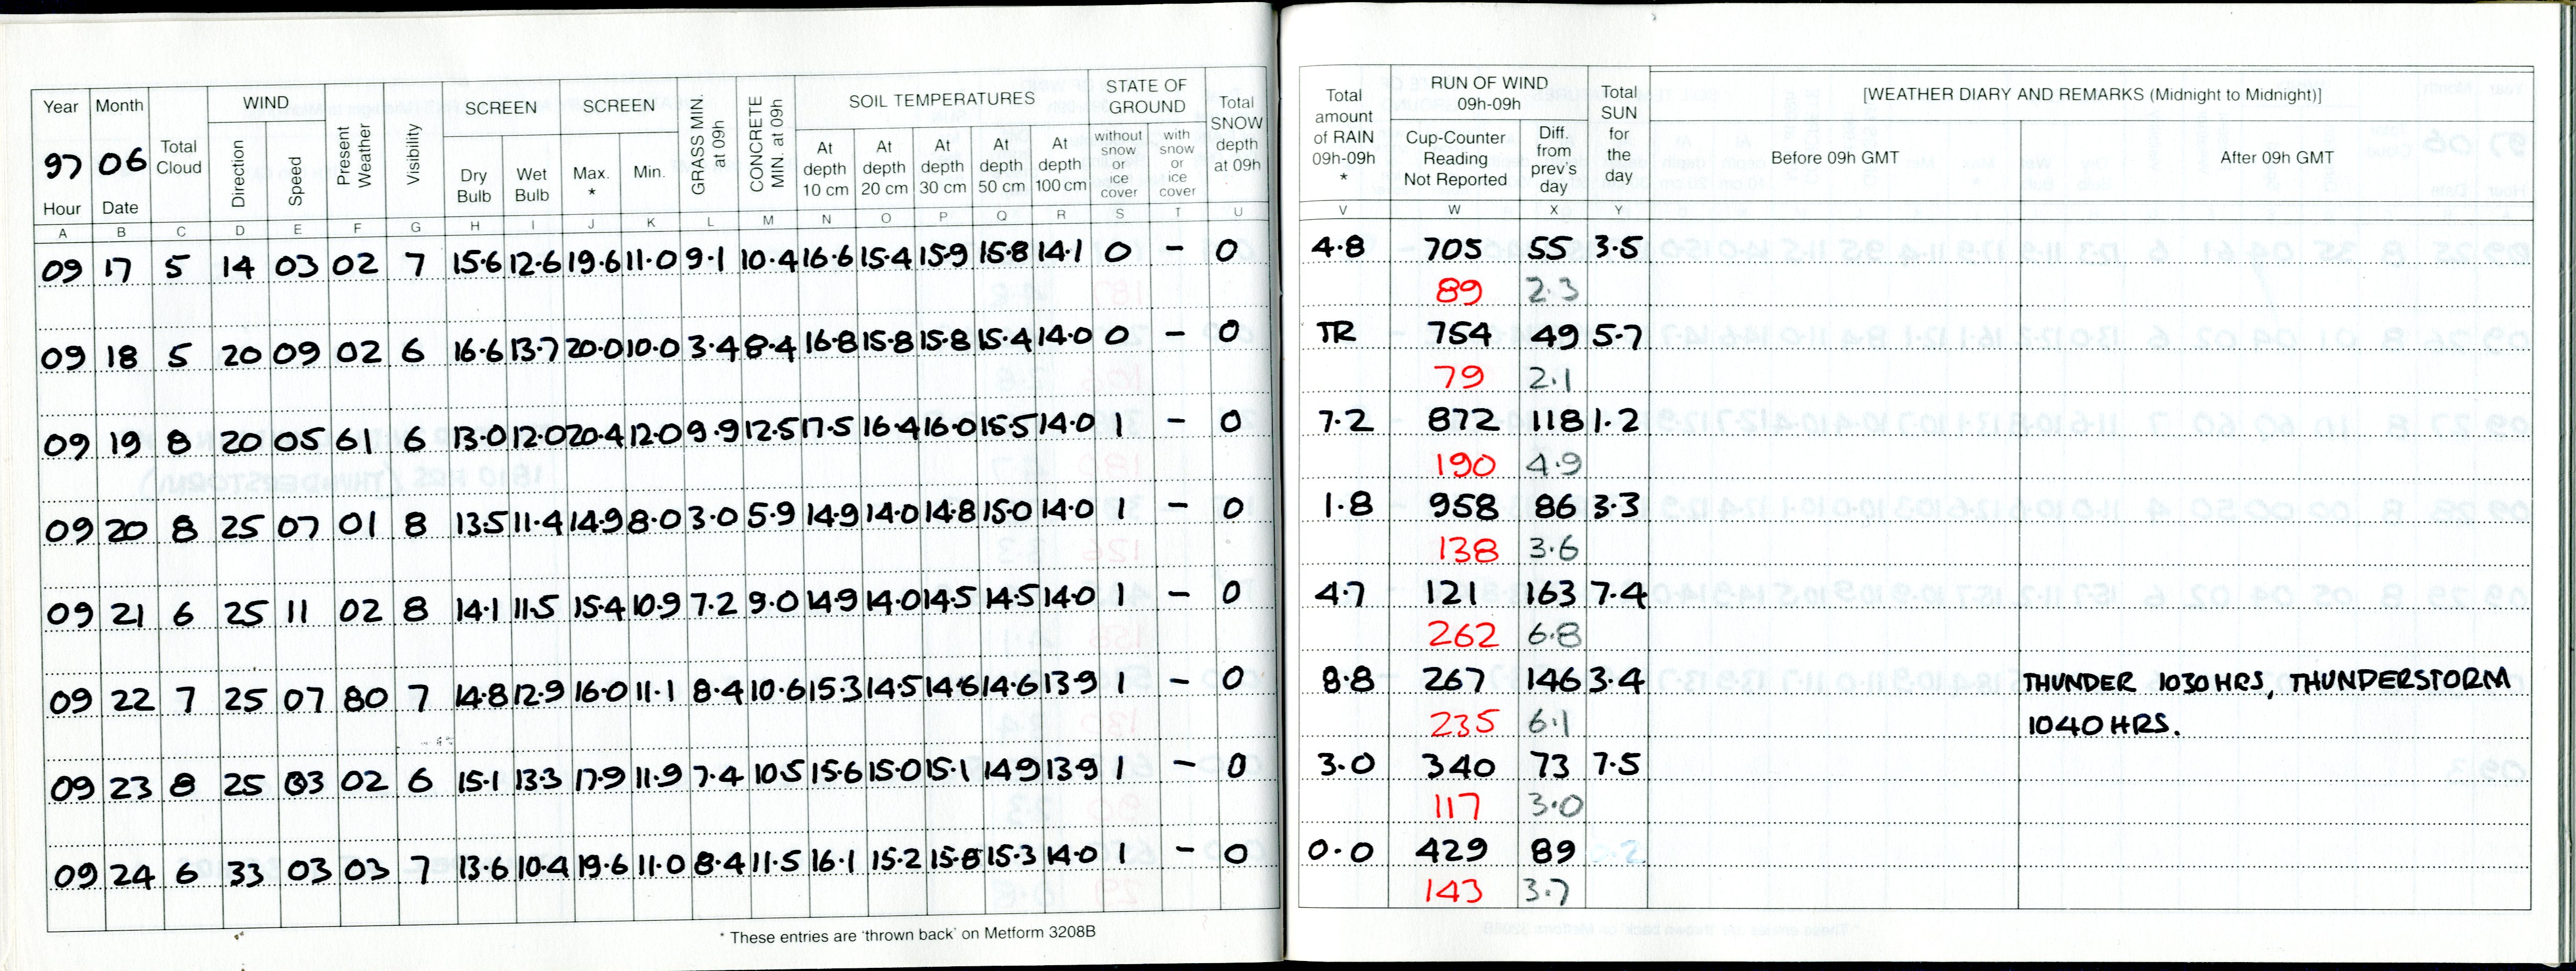 Year Month Total Cloud WIND Present Weather Visibility SCREEN SCREEN GRASS MIN. at 09h CONCRETE MIN. at 09h SOIL TEMPERATURES STATE OF GROUND Total SNOW depth at 09h Total amount of RAIN 09h-09h * RUN OF WIND 09h-09h Total SUN for the day [WEATHER DIARY AND REMARKS (Midnight to Midnight)]
97 06 Direction Speed Dry Bulb Wet Bulb Max. * Min. At depth 10 cm At depth 20 cm At depth 30 cm At depth 50 cm At depth 100 cm without snow or ice cover with snow or ice cover Cup-Counter Reading Not Reported Diff. from prev's day Before 09h GMT After 09h GMT
Hour Date
A B C D E F G H I J K L M N O P Q R S T U V W X Y
09 17 5 14 03 02 7 15.6 12.6 19.6 11.0 9.1 10.4 16.6 15.4 15.9 15.8 14.1 0 - 0 4.8 705 55 3.5
89 2.3
09 18 5 20 09 02 6 16.6 13.7 20.0 10.0 3.4 8.4 16.8 15.8 15.8 15.4 14.0 0 - 0 TR 754 49 5.7
79 2.1
09 19 8 20 05 61 6 13.0 12.0 20.4 12.0 9.9 12.5 17.5 16.4 16.0 15.5 14.0 1 - 0 7.2 872 118 1.2
190 4.9
09 20 8 25 07 01 8 13.5 11.4 14.9 8.0 3.0 5.9 14.9 14.0 14.8 15.0 14.0 1 - 0 1.8 958 86 3.3
138 3.6
09 21 6 25 11 02 8 14.1 11.5 15.4 10.9 7.2 9.0 14.9 14.0 14.5 14.5 14.0 1 - 0 4.7 121 163 7.4
262 6.8
09 22 7 25 07 80 7 14.8 12.9 16.0 11.1 8.4 10.6 15.3 14.5 14.6 14.6 13.9 1 - 0 8.8 267 146 3.4 THUNDER 1030 HRS, THUNDERSTORM
235 6.1 1040 HRS.
09 23 8 25 03 02 6 15.1 13.3 17.9 11.9 7.4 10.5 15.6 15.0 15.1 14.9 13.9 1 - 0 3.0 340 73 7.5
117 3.0
09 24 6 33 03 03 7 13.6 10.4 19.6 11.0 8.4 11.5 16.1 15.2 15.8 15.3 14.0 1 - 0 0.0 429 89
143 3.7
* These entries are 'thrown back' on Metform 3208B